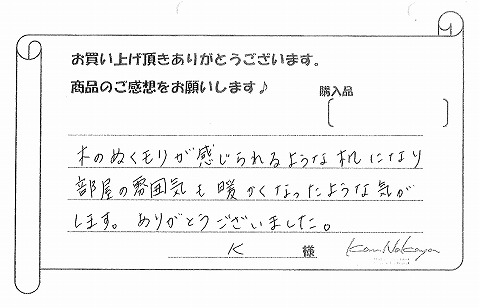 お買い上げ頂きありがとうございます。
商品のご感想をお願いします♪
購入品
木のぬくモリが感じられるような机になり
部屋の雰囲気も暖かくなったような気が
します。ありがとうございました。
K 様